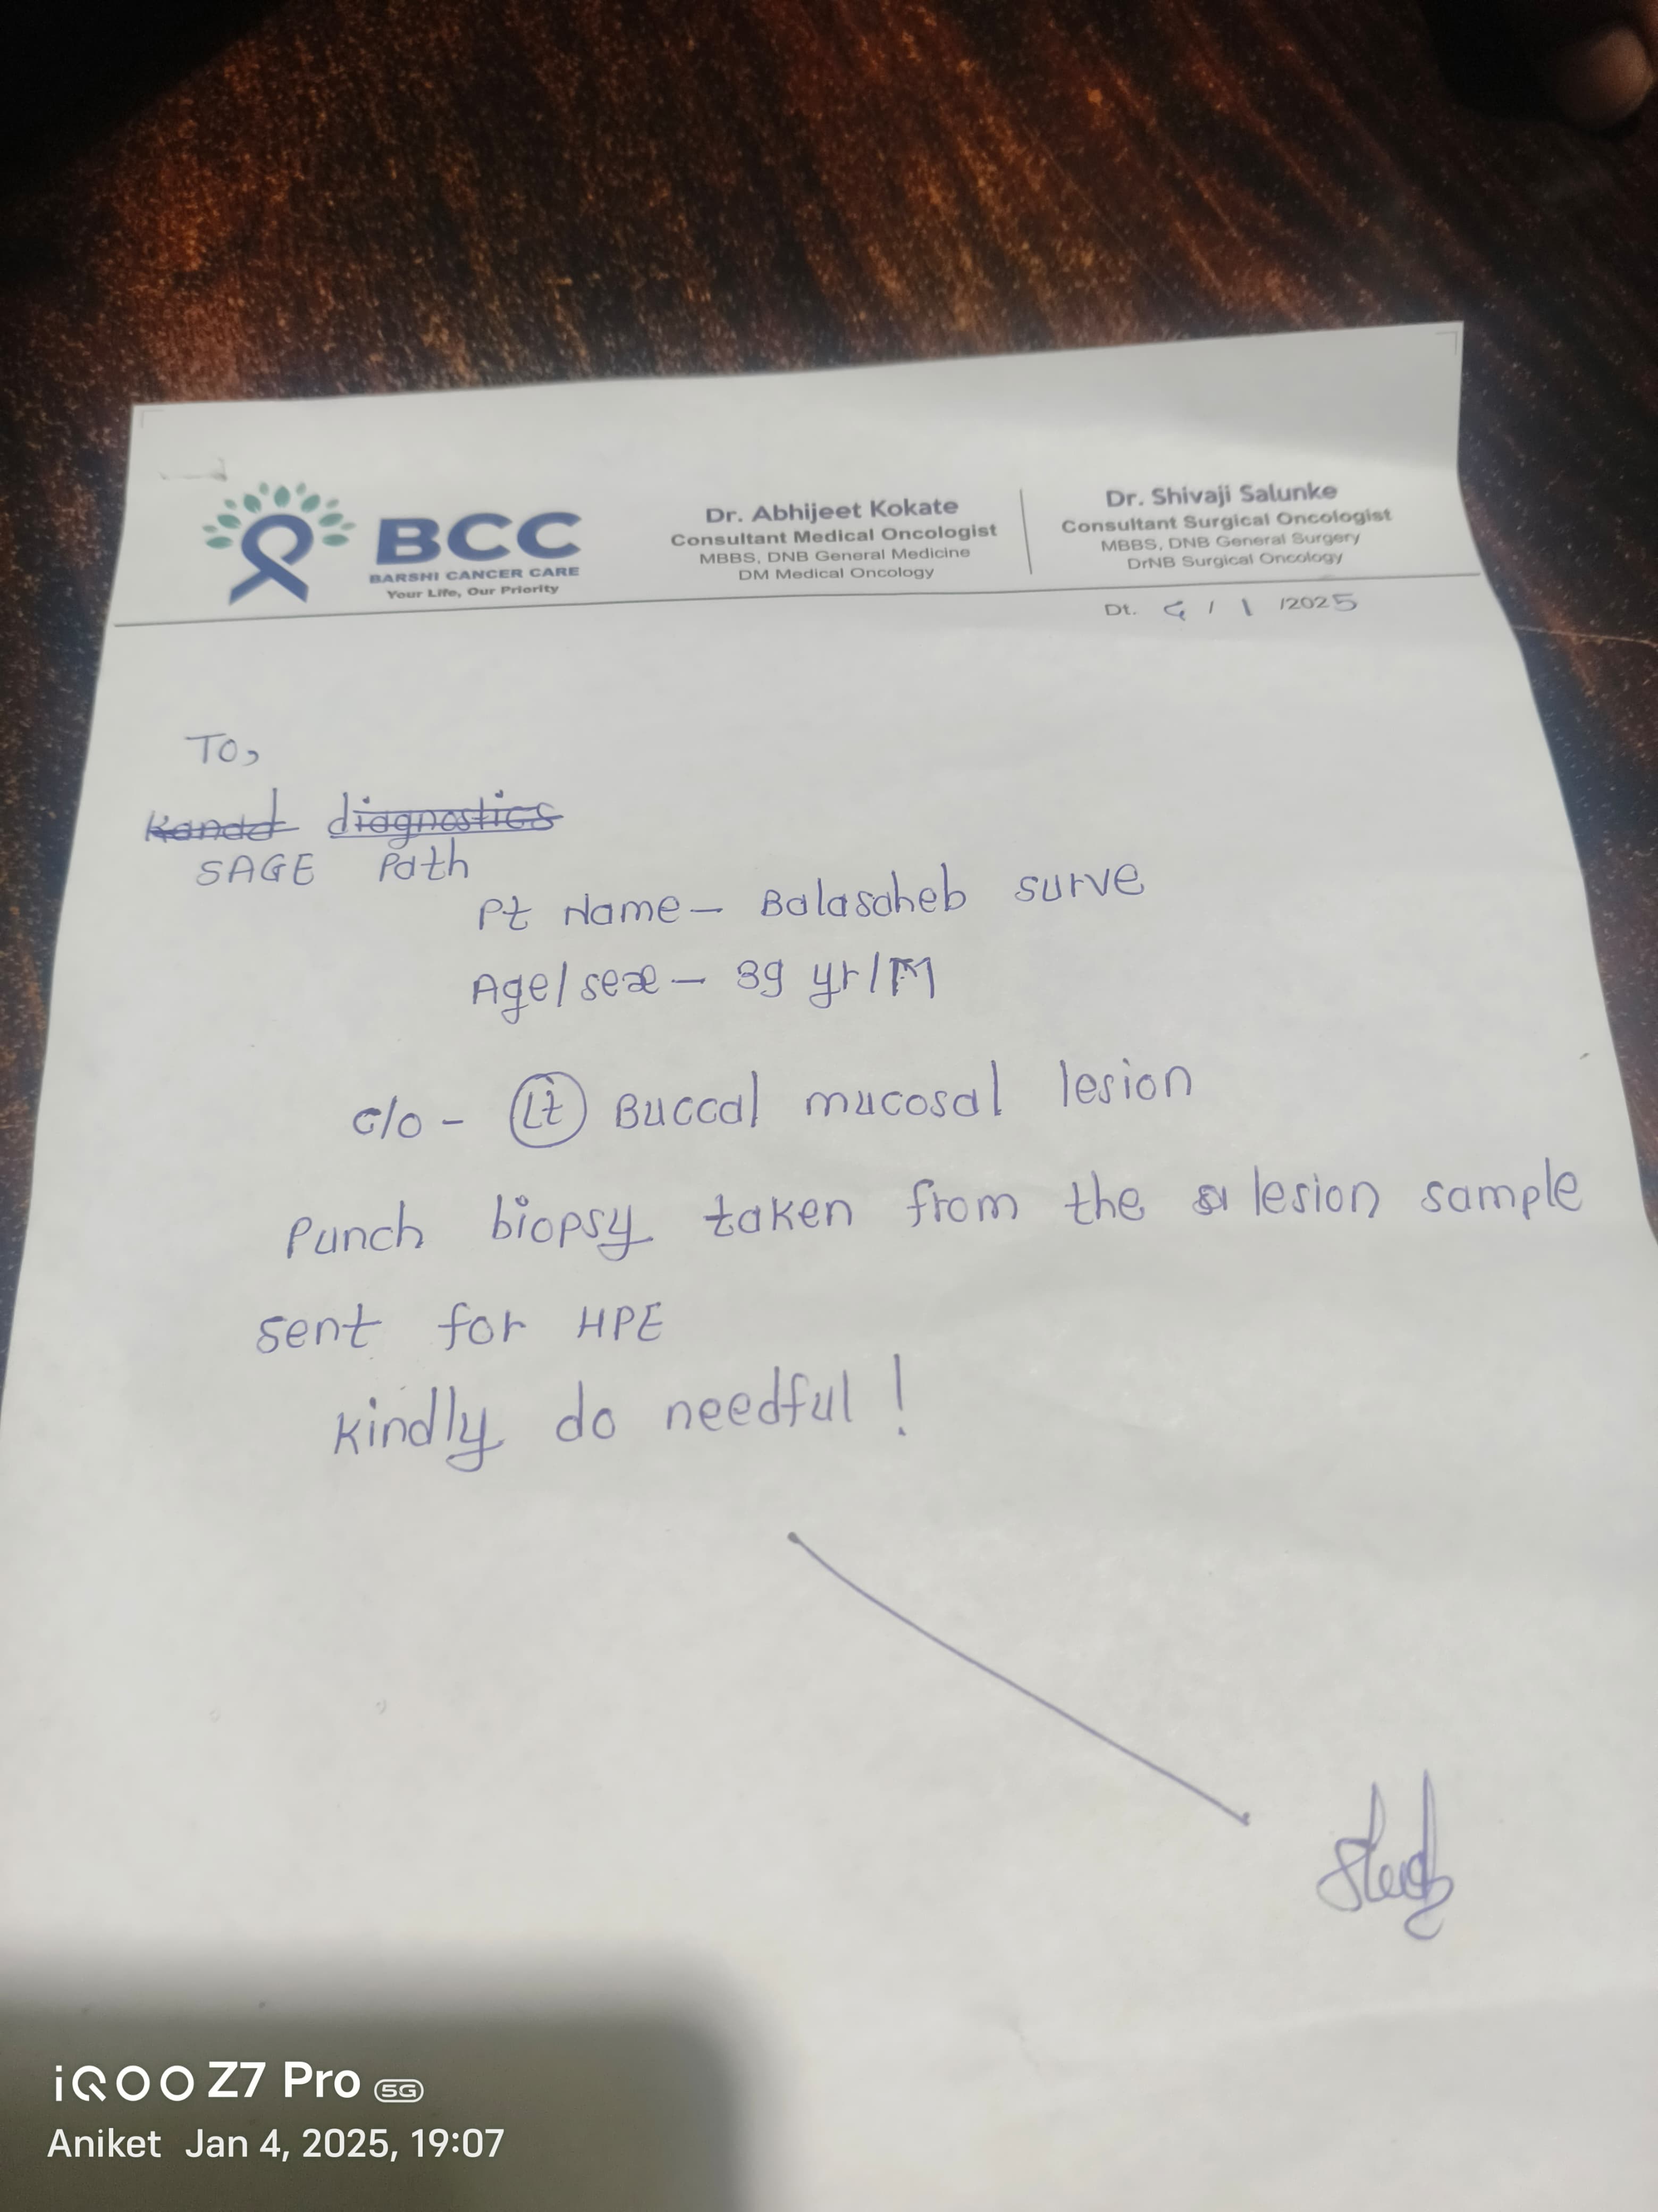 BCC
BARSHI CANCER CARE
Your Life, Our Priority
Dr. Abhijeet Kokate
Consultant Medical Oncologist
MBBS, DNB General Medicine
DM Medical Oncology
Dr. Shivaji Salunke
Consultant Surgical Oncologist
MBBS, DNB General Surgery
DrNB Surgical Oncology
Dt. 4 / 1 /2025
To,
diagnostics
SAGE Path
Pt Name - Balasaheb surve
Age/sex - 39 yr/M
c/o - Lt Buccal mucosal lesion
Punch biopsy taken from the lesion sample
sent for HPE
Kindly do needful !
iQOO Z7 Pro 5G
Aniket Jan 4, 2025, 19:07